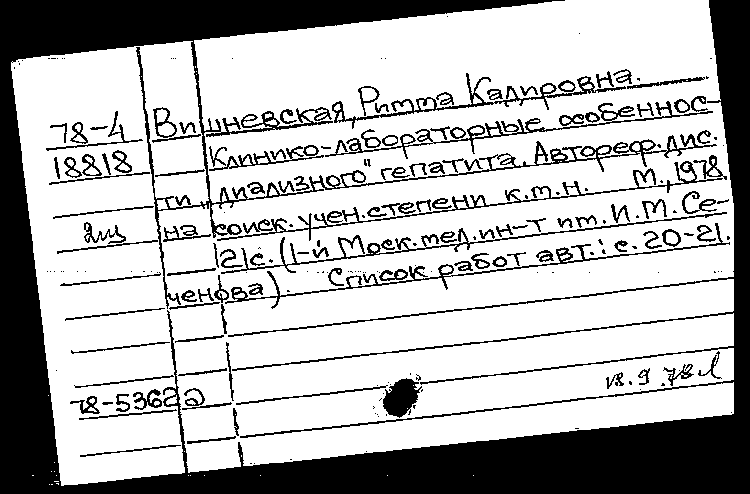 Вишневская, Римма Кадировна.
78-4 Клинико-лабораторные особеннос-
18818 ти „диализного" гепатита. Автореф. дис.
2эк на соиск. учен. степени к.м.н. М., 1978.
21с. (1-й Моск. мед. ин-т им. И.М. Се-
ченова). Список работ авт.: с. 20-21.
78-5362а
18.9.78